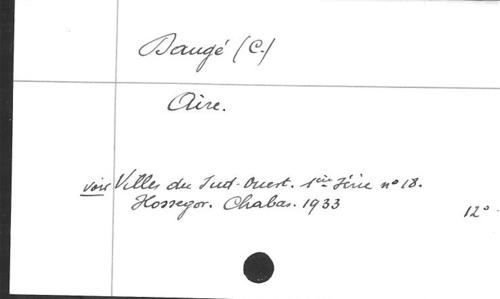 Daugé (C.)
Aire.
voir Villes du Sud-Ouest. 1ère Série n° 18.
Hossegor. Chabas. 1933
12°